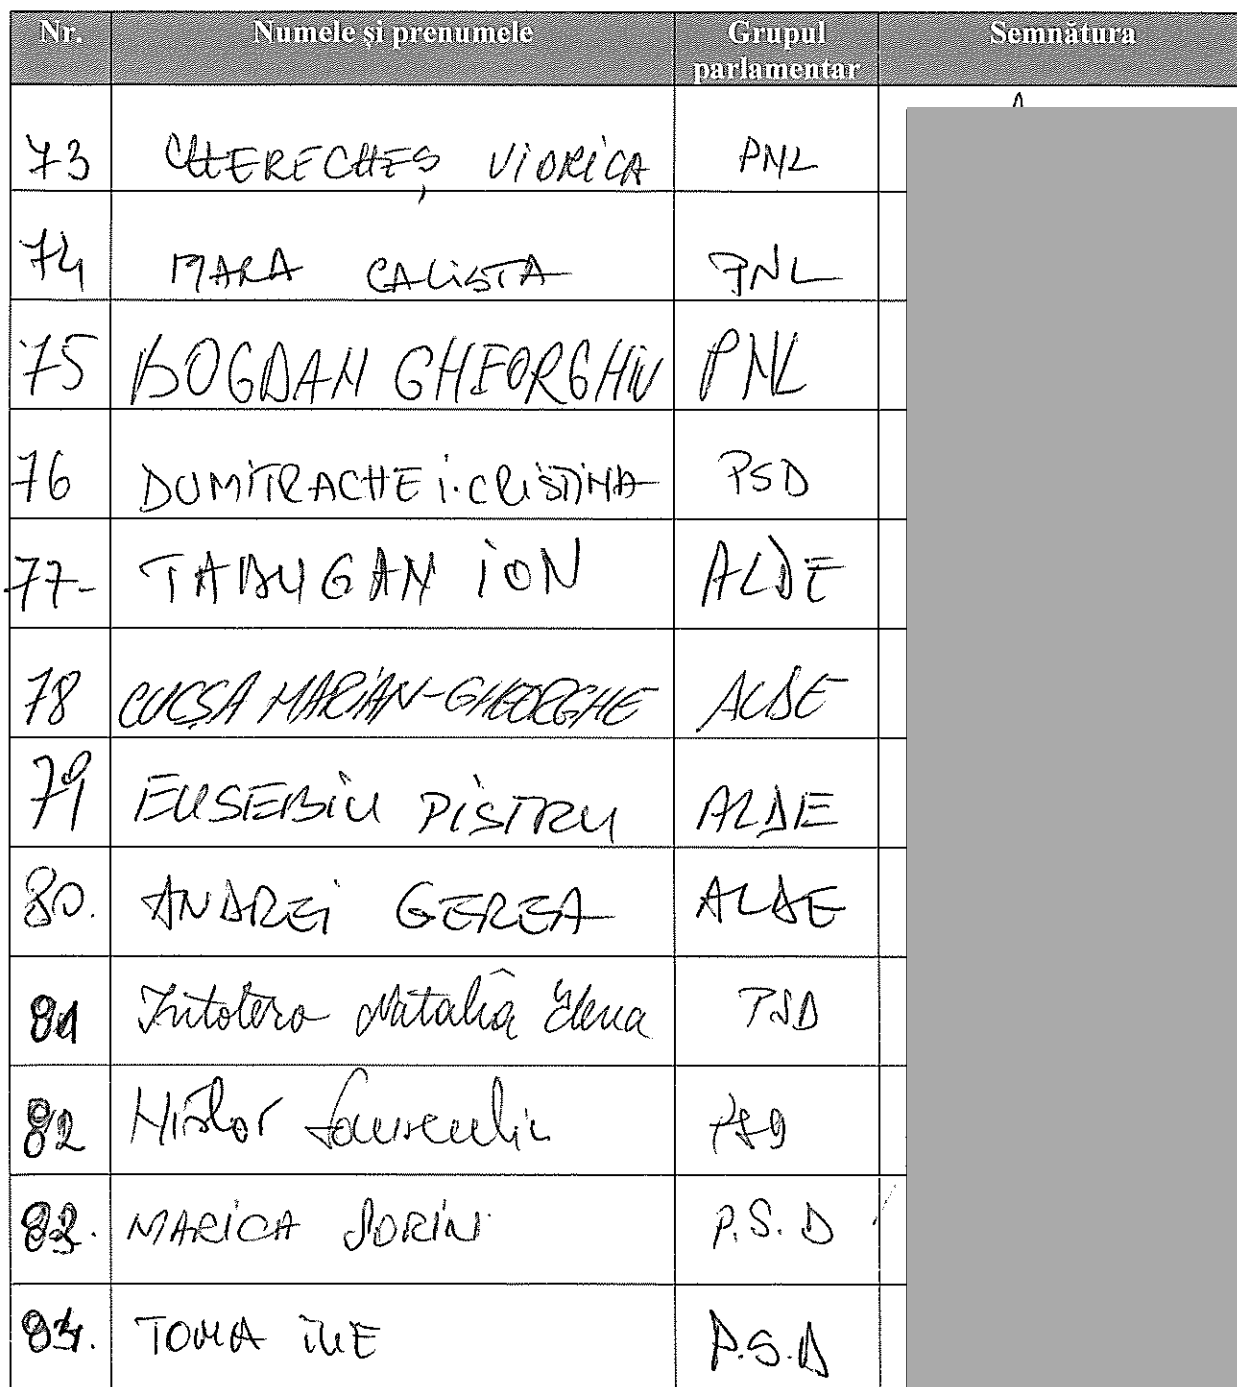 Nr. Numele și prenumele Grupul parlamentar Semnătura
73 CHERECHEȘ VIORICA PNL
74 MARA CALISTA PNL
75 BOGDAN GHEORGHIU PNL
76 DUMITRACHE I. CRISTINA PSD
77- TABUGAN ION ALDE
78 CUCȘA MARIAN-GHEORGHE ALDE
79 EUSEBIU PISTRU ALDE
80. ANDREI GEREA ALDE
81 Intotero Natalia Elena PSD
82 Nistor Laurentiu PSD
83. MARICA SORIN P.S.D
84. TOMA ILIE P.S.D